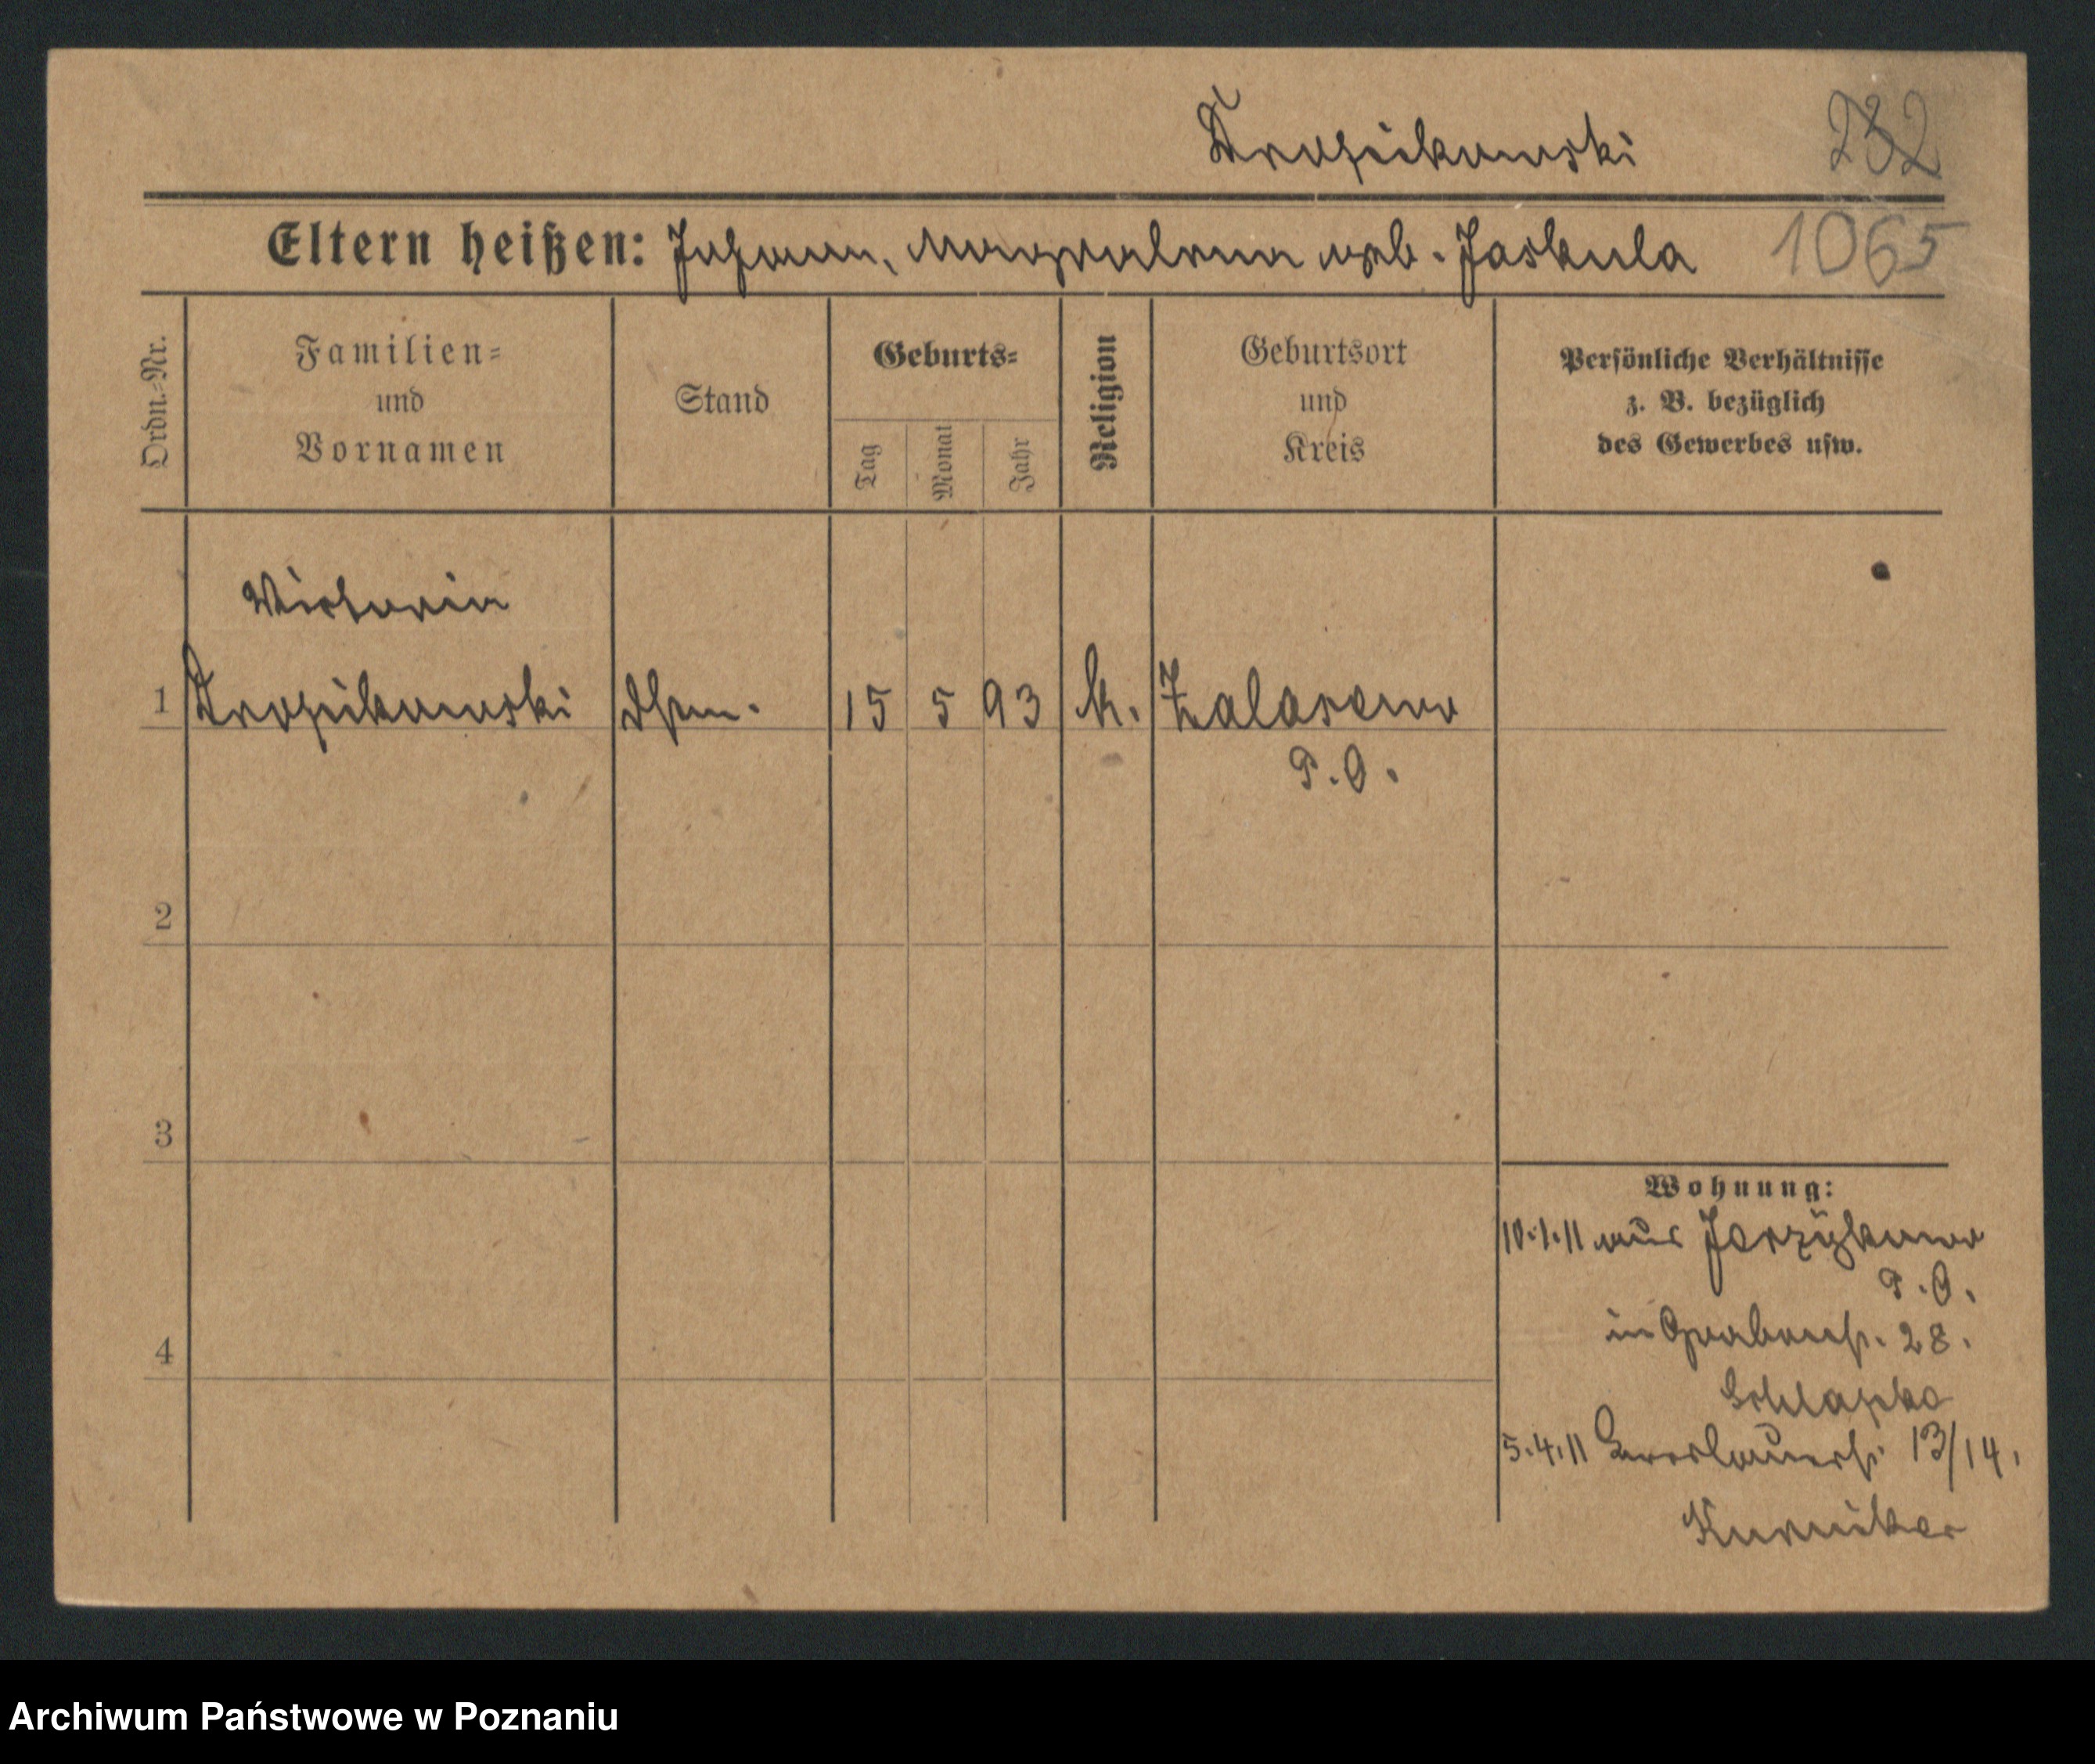 Drozdikowski
232
Eltern heißen: Johann, Magdalena geb. Jaskula
1065
Ordn.=Nr.
Familien=
und
Vornamen
Stand
Geburts=
Tag
Monat
Jahr
Religion
Geburtsort
und
Kreis
Persönliche Verhältnisse
z. B. bezüglich
des Gewerbes usw.
Victoria
1
15 5 93 k. Zalasewo
P. O.
2
3
4
Wohnung:
10.1.11 aus
P. O.
in Grabenst. 28.
Schlapka
5.4.11 Breslauerst. 13/14.
Kurniker
Archiwum Państwowe w Poznaniu